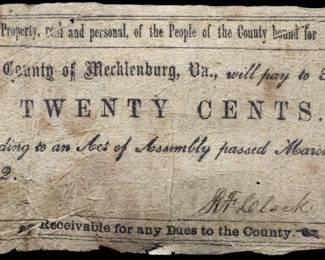 Property, real and personal, of the People of the County bound for
County of Mecklenburg, Va., will pay to
TWENTY CENTS.
ding to an Act of Assembly passed March
2.
R F Clack
Receivable for any Dues to the County.